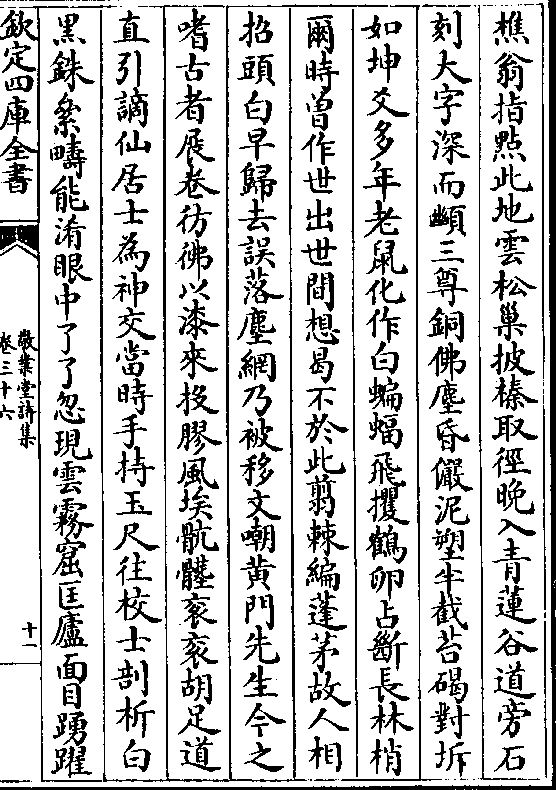 樵翁指㸃此地雲松巢披榛取徑晚入青蓮谷道旁石
刻大字深而䫜三尊銅佛塵昏儼泥塑半截苔碣對坼
如坤爻多年老鼠化作白蝙蝠飛攫鶴卵占斷長林梢
爾時曽作世出世間想曷不於此翦棘編蓬茅故人相
招頭白早歸去誤落塵網乃被移文嘲黄門先生今之
嗜古者展卷彷彿以漆來投膠風埃骯髒衮衮胡足道
直引謫仙居士為神交當時手持玉尺往校士剖析白
黒銖絫疇能淆眼中了了忽現雲霧窟匡廬面目踴躍
欽定四庫全書
敬業堂詩集
卷三十六
十一